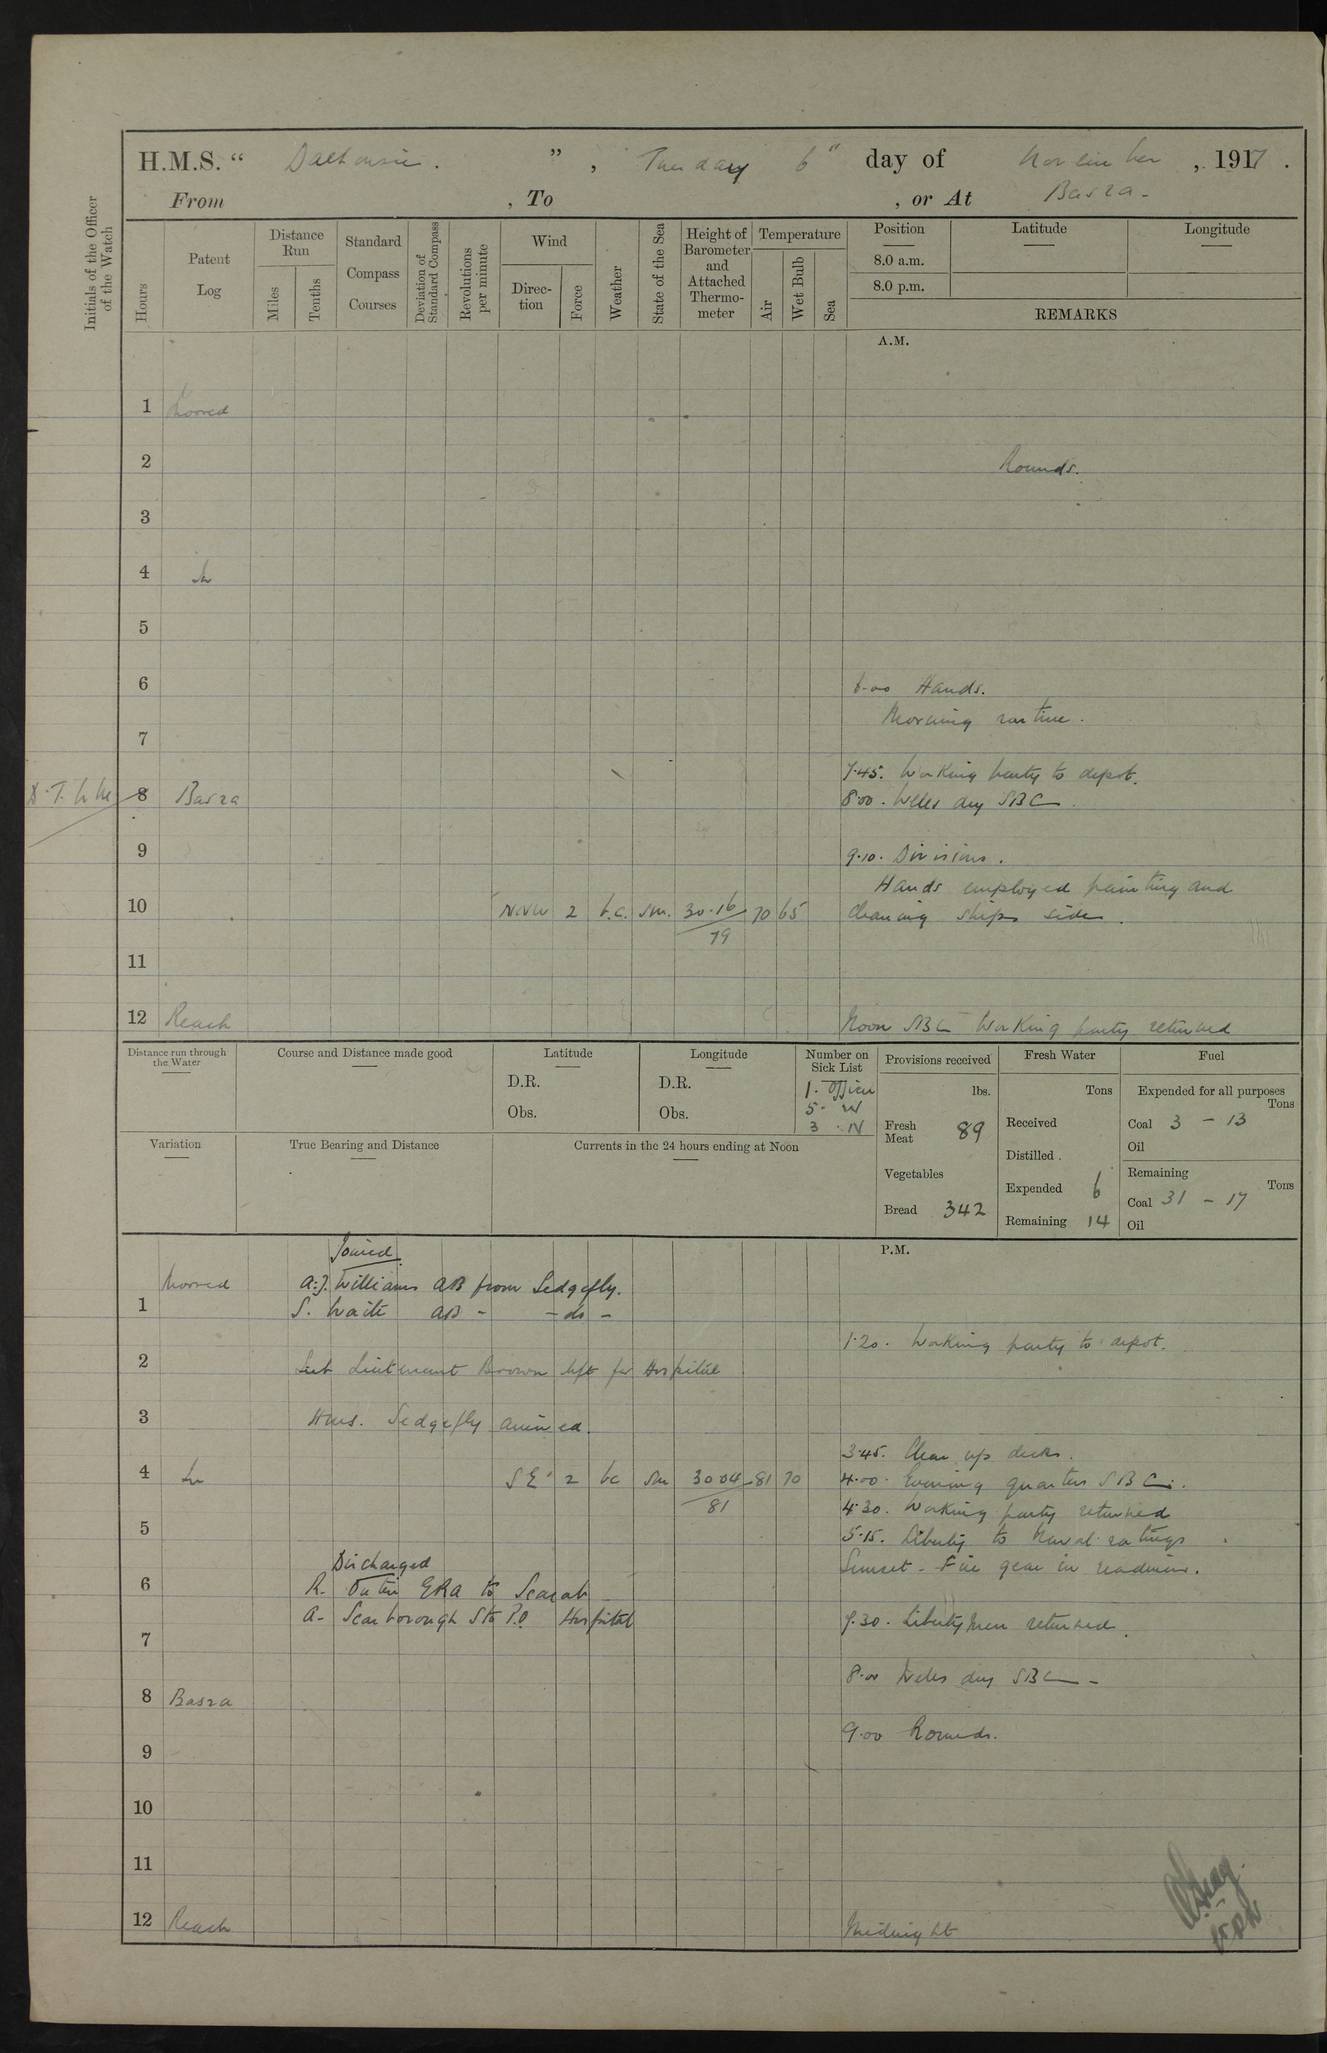 H.M.S. “ Dalhousie. ” , Tuesday 6" day of November , 1917 .
From , To , or At Basra -
Initials of the Officer of the Watch
Hours
Patent Log
Distance Run
Miles
Tenths
Standard Compass Courses
Deviation of Standard Compass
Revolutions per minute
Wind
Direc-tion
Force
Weather
State of the Sea
Height of Barometer and Attached Thermo-meter
Temperature
Air
Wet Bulb
Sea
Position
8.0 a.m.
8.0 p.m.
Latitude
Longitude
REMARKS
A.M.
1 Moored
2 Rounds.
3
4 In
5
6 6.00 Hands.
Morning routine.
7
7.45. Working party to depot.
8 Basra 8.00. Weles dey SBC
9 9.10. Divisions.
Hands employed painting and
10 NNW 2 b.c. sm. 30.16 70 65 cleaning ships side.
79
11
12 Reach Noon SBC Working party returned
Distance run through the Water
Course and Distance made good
Latitude
D.R.
Obs.
Longitude
D.R.
Obs.
Number on Sick List
1. Officer
5. W
3. N
Provisions received
lbs.
Fresh Meat 89
Vegetables
Bread 342
Fresh Water
Tons
Received
Distilled .
Expended 6
Remaining 14
Fuel
Expended for all purposes
Tons
Coal 3 - 13
Oil
Remaining
Tons
Coal 31 - 17
Oil
Variation
True Bearing and Distance
Currents in the 24 hours ending at Noon
P.M.
Joined
Moored A.J. Williams AB from Sedgefly.
1 S. Waite AB - - do -
1.20. Working party to depot.
2 Sub Lieutenant Brown left for Hospital
3 Hms. Sedgefly arrived.
3.45. Clear up decks.
4 In SE 2 bc sm 30 04 81 70 4.00. Evening quarters SBC.
81
4.30. Working party returned
5 5.15. Liberty to Naval ratings.
Discharged Sunset - Fire gear in readiness.
6 R. ERA to Scarab
A. Scarborough Sto P.O. Hospital 7.30. Liberty men returned.
7
8.00 Weles dey SBC -
8 Basra
9.00 Rounds.
9
10
11
12 Reach Midnight